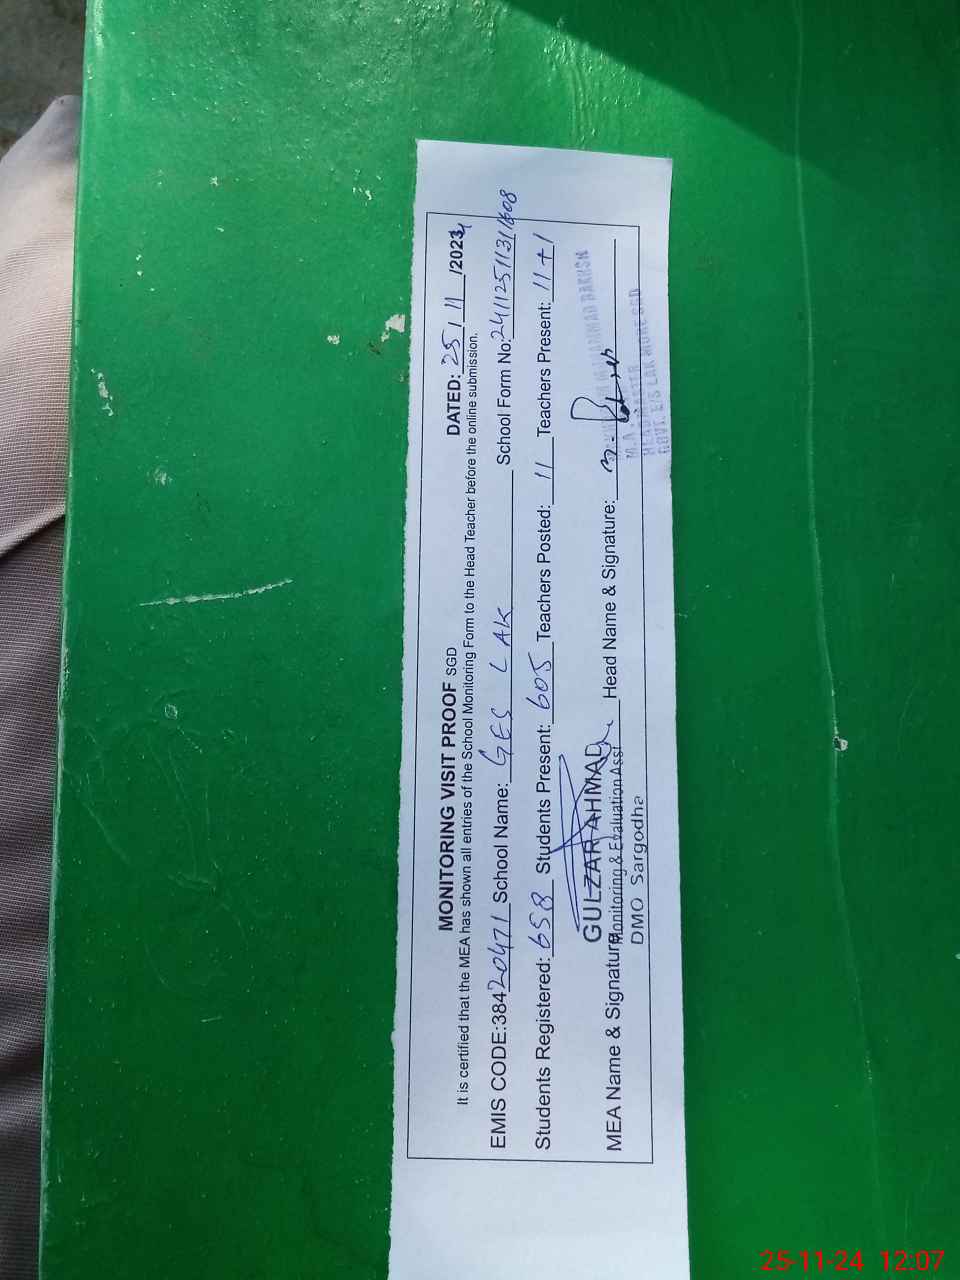 MONITORING VISIT PROOF SGD
DATED: 25/11/2024
It is certified that the MEA has shown all entries of the School Monitoring Form to the Head Teacher before the online submission.
EMIS CODE:38420471 School Name: GES LAK School Form No:
Students Registered: 658 Students Present: 605 Teachers Posted: 11 Teachers Present: 11+1
MEA Name & Signature Head Name & Signature:
GULZAR AHMAD
Monitoring & Evaluation Asst
DMO Sargodha
MUHAMMAD BAKHSH
M.A.
HEADMASTER
GOVT. E/S LAK MORE SGD
25-11-24 12:07